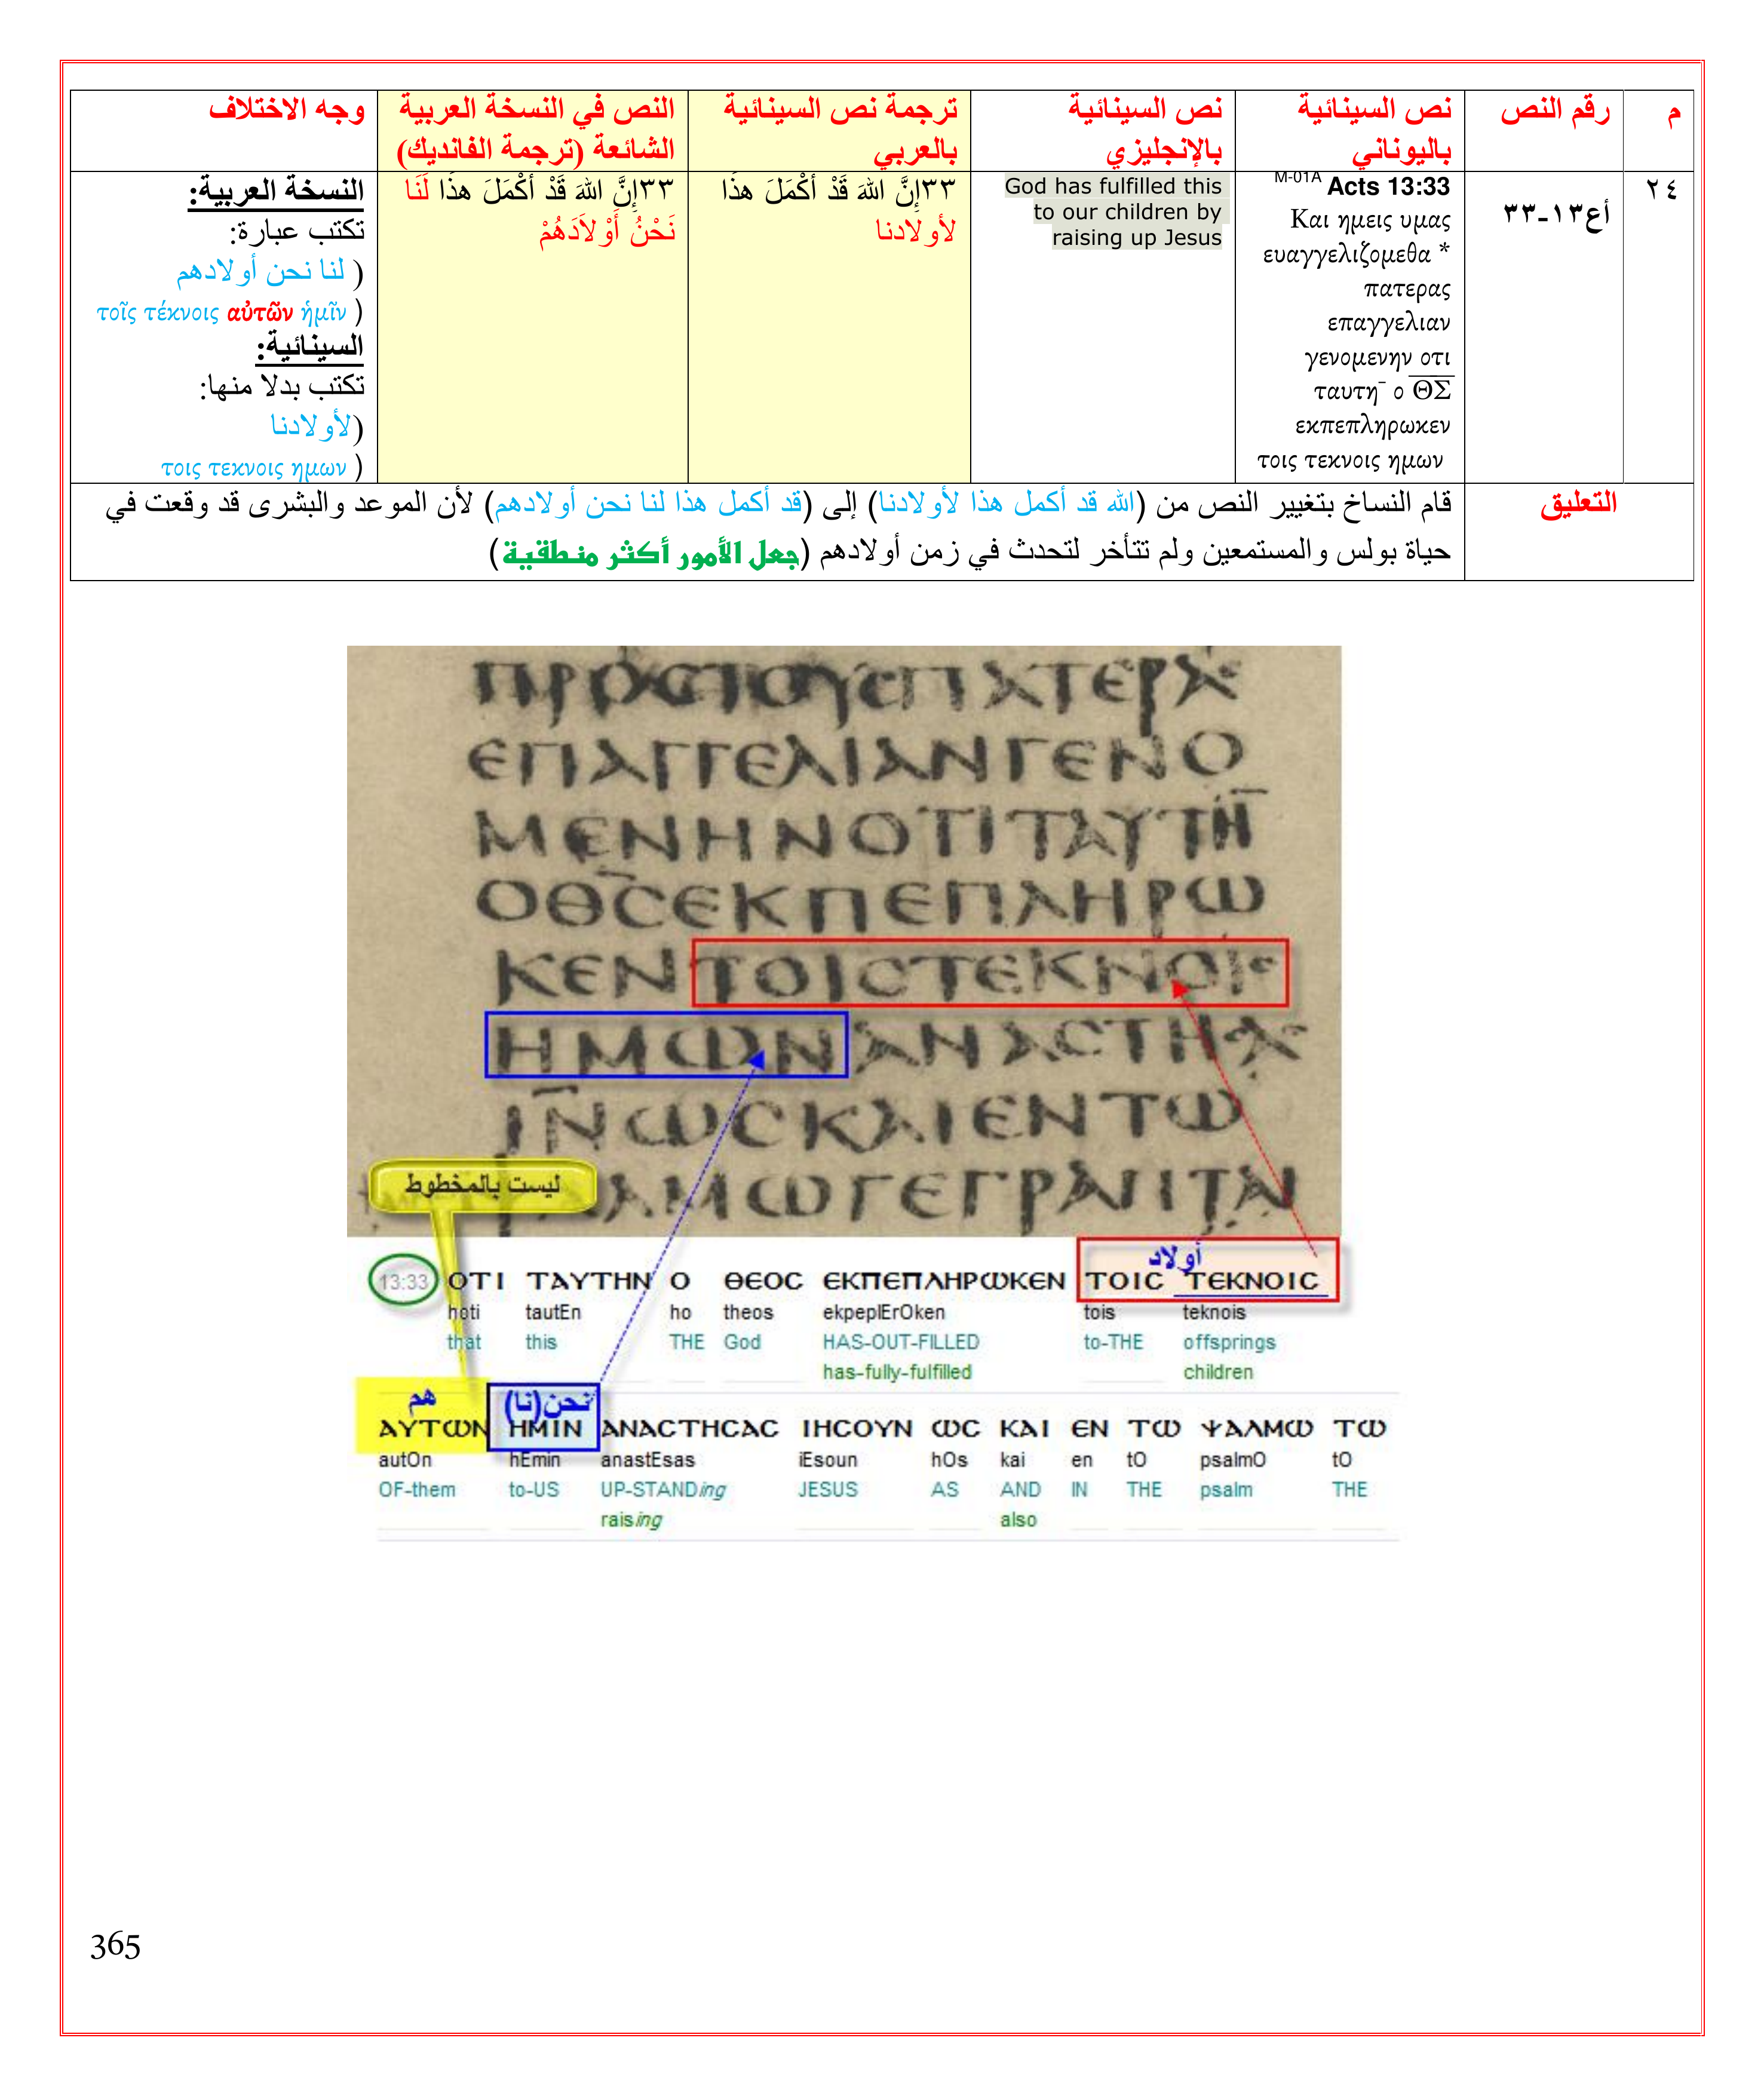 م
رقم النص
نص السينائية
باليوناني
نص السينائية
بالإنجليزي
ترجمة نص السينائية
بالعربي
النص في النسخة العربية
الشائعة (ترجمة الفانديك)
وجه الاختلاف
٢٤
أع١٣-٣٣
M-01A Acts 13:33
Και ημεις υμας
ευαγγελιζομεθα *
πατερας
επαγγελιαν
γενομενην οτι
ταυτη¯ ο ΘΣ
εκπεπληρωκεν
τοις τεκνοις ημων
God has fulfilled this
to our children by
raising up Jesus
٣٣إِنَّ اللهَ قَدْ أَكْمَلَ هذَا
لأولادنا
٣٣إِنَّ اللهَ قَدْ أَكْمَلَ هذَا لَنَا
نَحْنُ أَوْلاَدَهُمْ
النسخة العربية:
تكتب عبارة:
( لنا نحن أولادهم
τοῖς τέκνοις αὐτῶν ἡμῖν )
السينائية:
تكتب بدلا منها:
(لأولادنا
τοις τεκνοις ημων )
التعليق
قام النساخ بتغيير النص من (الله قد أكمل هذا لأولادنا) إلى (قد أكمل هذا لنا نحن أولادهم) لأن الموعد والبشرى قد وقعت في
حياة بولس والمستمعين ولم تتأخر لتحدث في زمن أولادهم (جعل الأمور أكثر منطقية)
ΠΡΟϹΤΟΥϹΠΑΤΕΡΑϹ
ΕΠΑΓΓΕΛΙΑΝΓΕΝΟ
ΜΕΝΗΝΟΤΙΤΑΥΤΗ̅
ΟΘ̅Ϲ̅ΕΚΠΕΠΛΗΡΩ
ΚΕΝΤΟΙϹΤΕΚΝΟΙϹ
ΗΜΩΝΑΝΑϹΤΗϹΑϹ
Ι̅Ν̅ΩϹΚΑΙΕΝΤΩ
ΑΜΩΓΕΓΡΑΠΤΑΙ
ليست بالمخطوط
أولاد
13:33 ΟΤΙ ΤΑΥΤΗΝ Ο ΘΕΟϹ ΕΚΠΕΠΛΗΡΩΚΕΝ ΤΟΙϹ ΤΕΚΝΟΙϹ
hoti tautEn ho theos ekpeplErOken tois teknois
that this THE God HAS-OUT-FILLED to-THE offsprings
has-fully-fulfilled children
هم نحن(نا)
ΑΥΤΩΝ ΗΜΙΝ ΑΝΑϹΤΗϹΑϹ ΙΗϹΟΥΝ ΩϹ ΚΑΙ ΕΝ ΤΩ ΨΑΛΜΩ ΤΩ
autOn hEmin anastEsas iEsoun hOs kai en tO psalmO tO
OF-them to-US UP-STANDing JESUS AS AND IN THE psalm THE
raising also
365